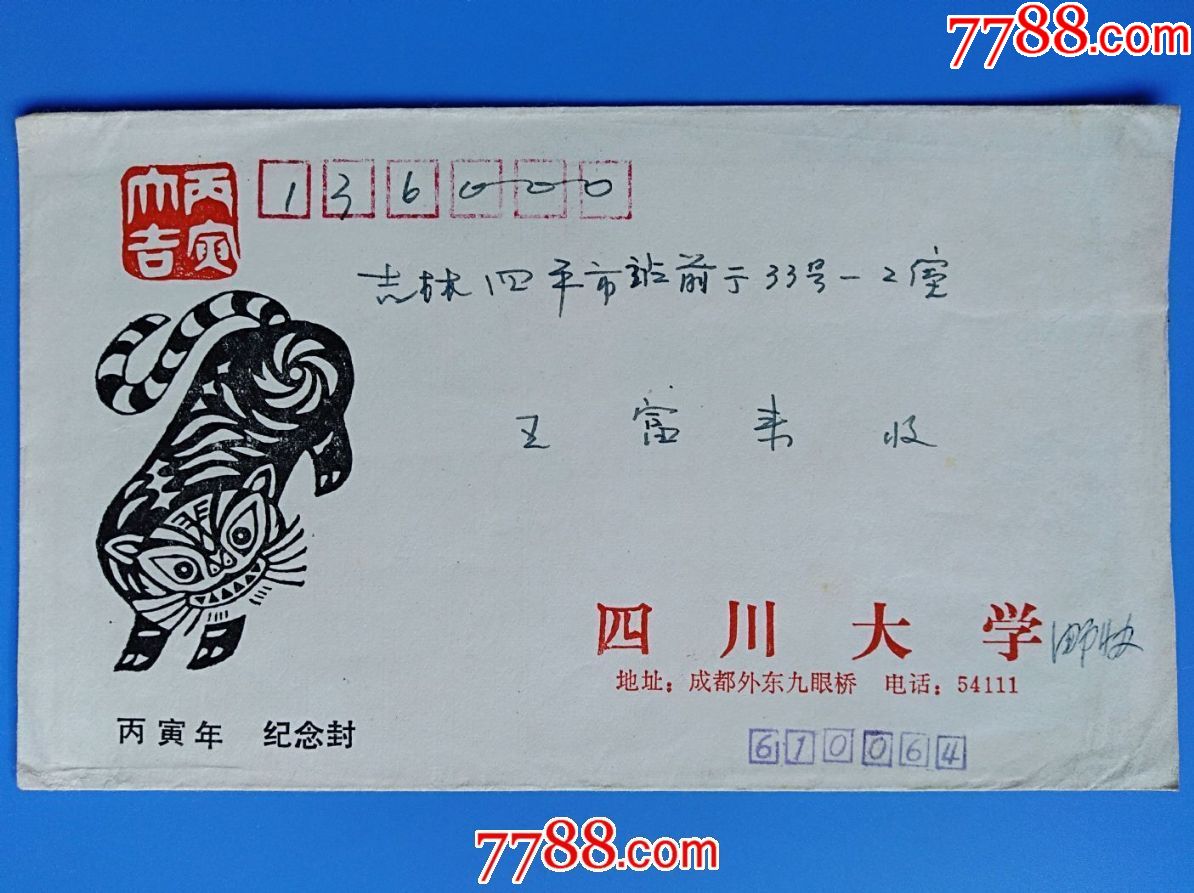 7788.com
丙寅大吉
136000
吉林四平市站前于33号一2室
王富来收
四川大学
地址：成都外东九眼桥 电话：54111
丙寅年 纪念封
610064
7788.com